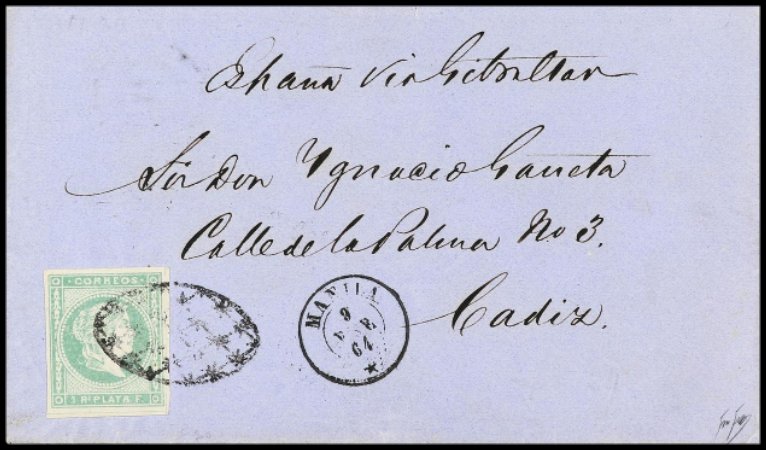 España via Gibraltar
Sór Don Ygnacio
Calle de la Palma No 3.
Cadiz.
CORREOS
1 Rl PLATA F.
MANILA
9
64